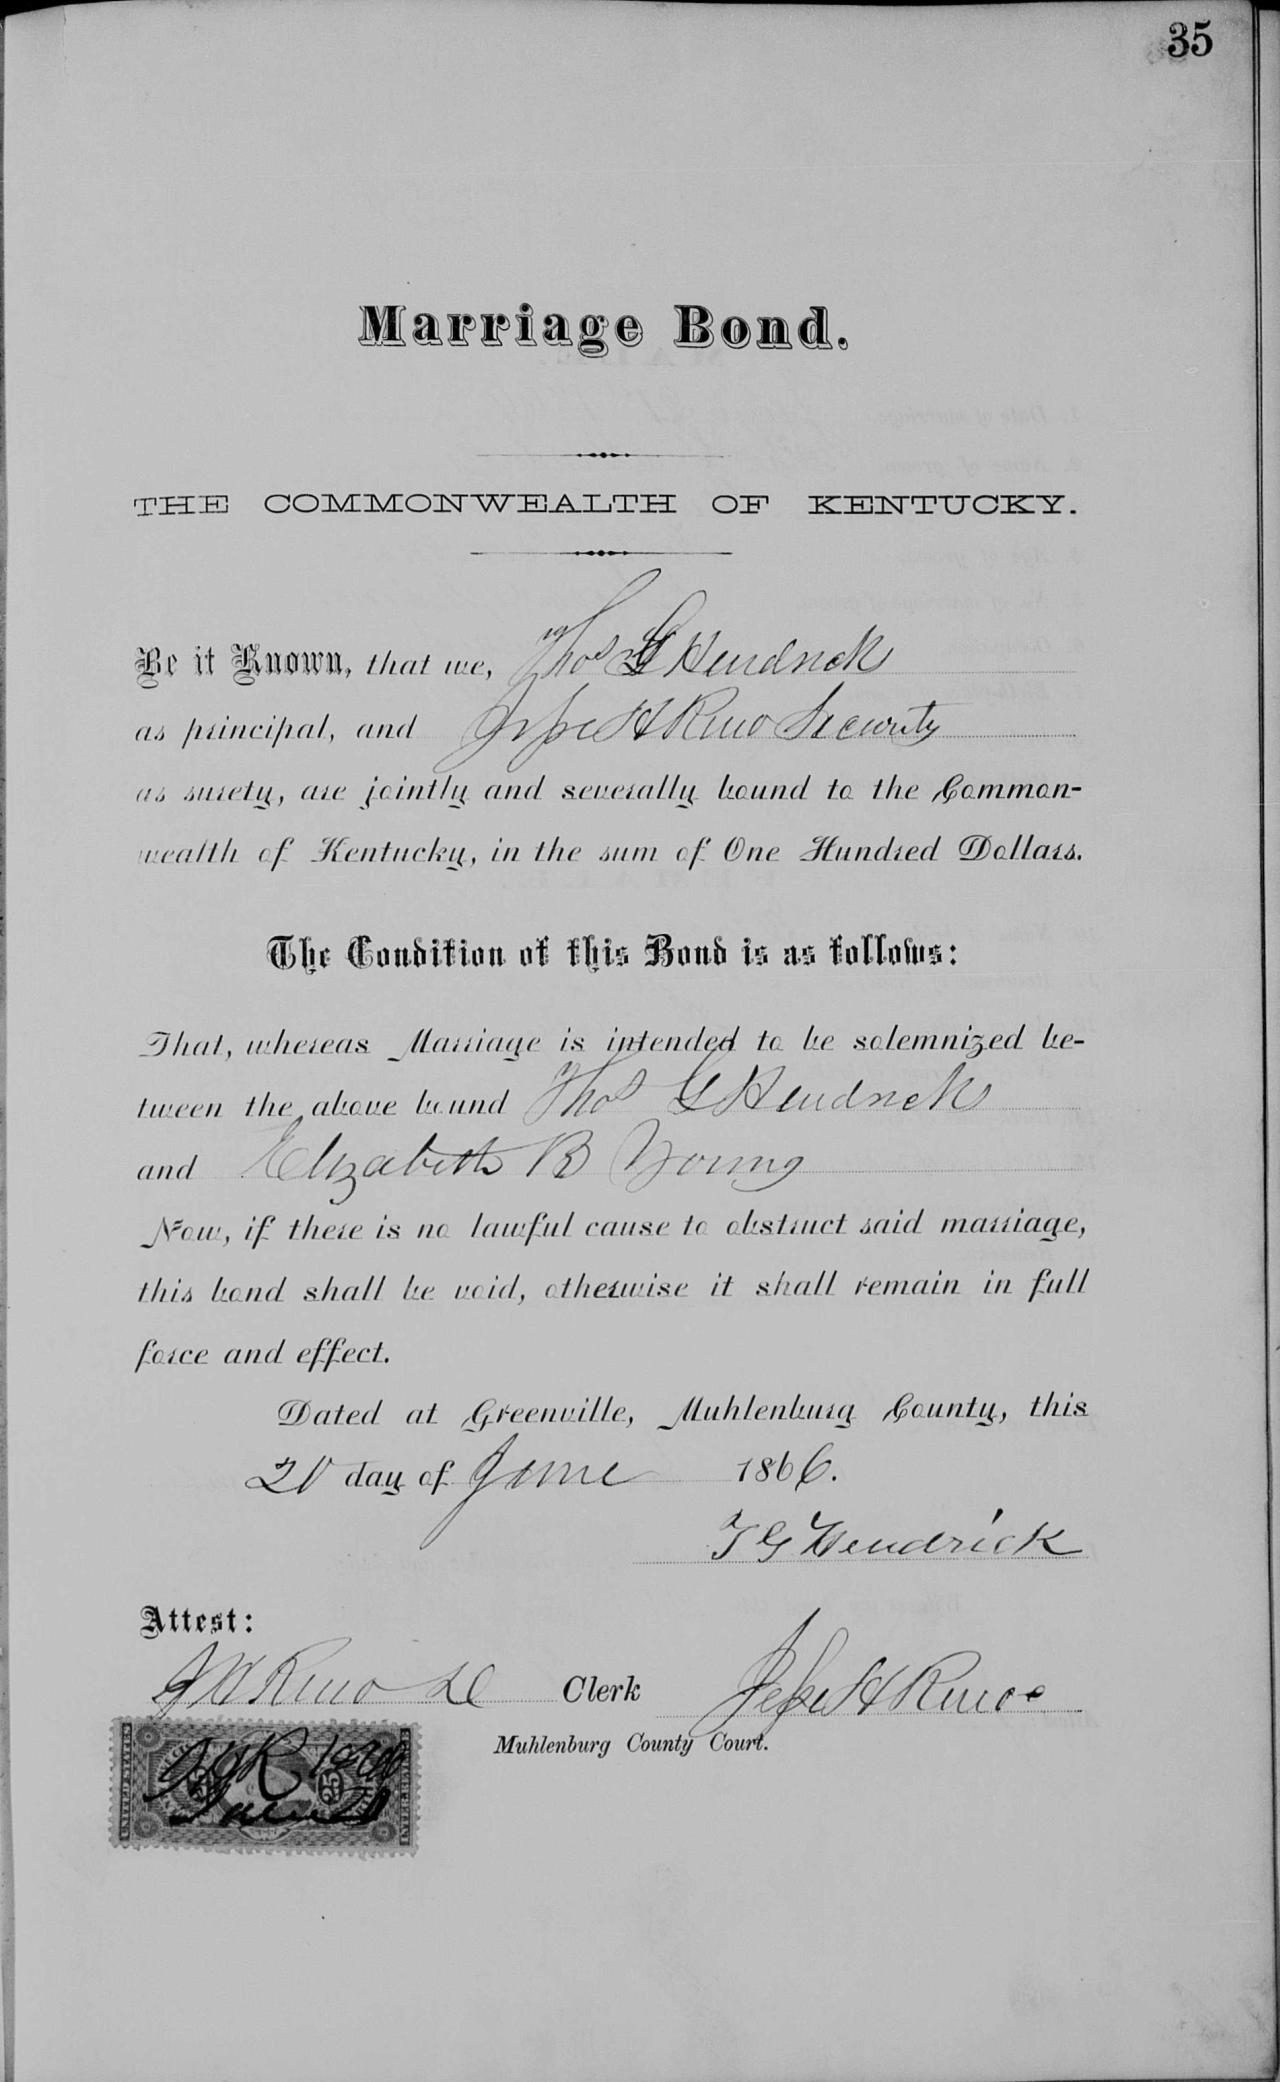 35
Marriage Bond.
THE COMMONWEALTH OF KENTUCKY.
Be it Known, that we, Thos G Hendrick
as principal, and Jesse H Reno Security
as surety, are jointly and severally bound to the Common-
wealth of Kentucky, in the sum of One Hundred Dollars.
The Condition of this Bond is as follows:
That, whereas Marriage is intended to be solemnized be-
tween the above bound Thos G Hendrick
and Elizabeth B Young
Now, if there is no lawful cause to obstruct said marriage,
this bond shall be void, otherwise it shall remain in full
force and effect.
Dated at Greenville, Muhlenburg County, this
20 day of June 1866.
T G Hendrick
Attest:
J W Reno Clerk Jesse H Reno
Muhlenburg County Court.
UNITED STATES
25 25
June 20